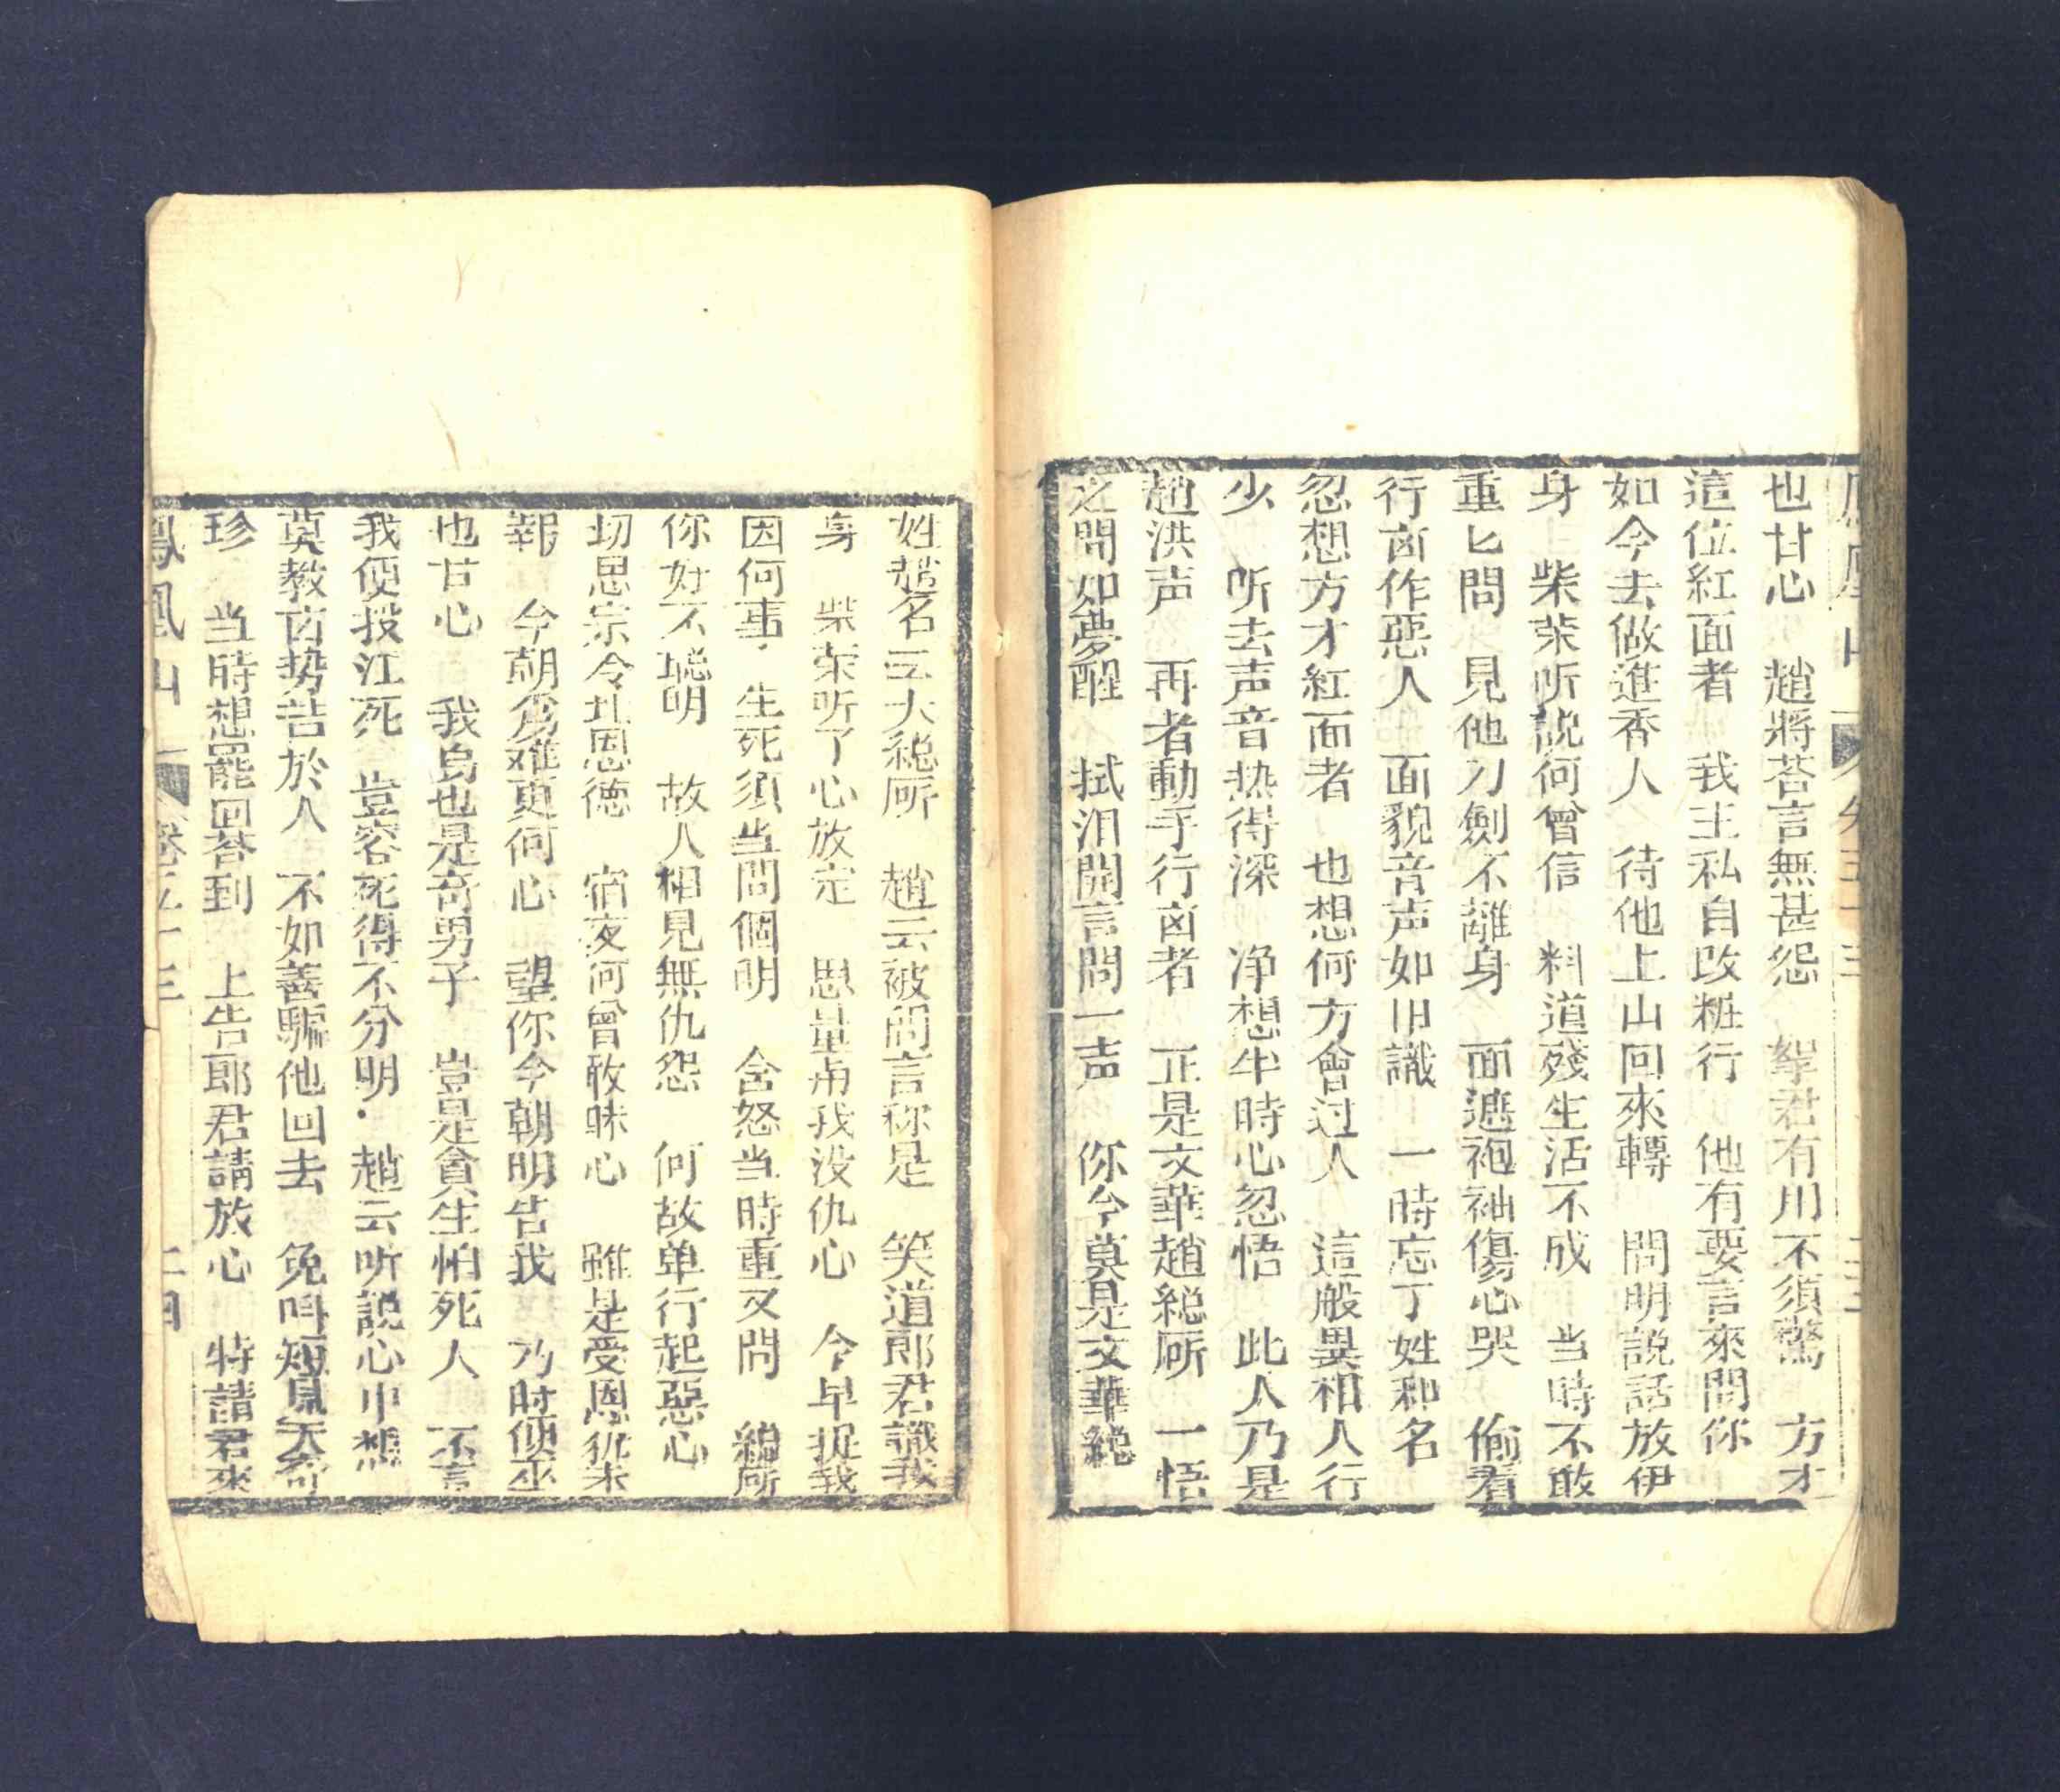 也甘心　趙將荅言無甚怨　挐君有川不須驚　方才
這位紅面者　我主私自改粧行　他有要言來問你
如今去做進香人　待他上山回來轉　問明説話放伊
身　柴荣听説何曾信　料道殘生活不成　当時不敢
重匕問　見他刀劍不離身　面遮袍袖傷心哭　偷看
行㐫作惡人　面貌音声如旧識　一時忘了姓和名
忽想方才紅面者　也想何方會过人　這般異相人行
少　听去声音热得深　净想半時心忽悟　此人乃是
趙洪声　再者動手行㐫者　正是文華趙総厛　一悟
之間如夢醒　拭泪開言問一声　你今莫是文華総
姓趙名云大総厛　趙云被問言称是　笑道郎君識我
身　柴荣听了心放定　思量甭我没仇心　今早捉我
因何事　生死須当問個明　含怒当時重又問　総厛
你好不聪明　故人相見無仇怨　何故单行起惡心
切思宗令北恩德　宿夜何曾敢昧心　雖是受恩犹未
報　今朝為难更何心　望你今朝明告我　乃时便巫
也甘心　我島也是奇男子　豈是貪生怕死人　不言
我便投江死　豈容死得不分明　趙云听説心中想
莫教㐫势告於人　不如善騙他回去　免叫短見夭奇
珍　当時想罷回荅到　上告郎君請放心　特請君來
鳳凰山　卷五十三　二四